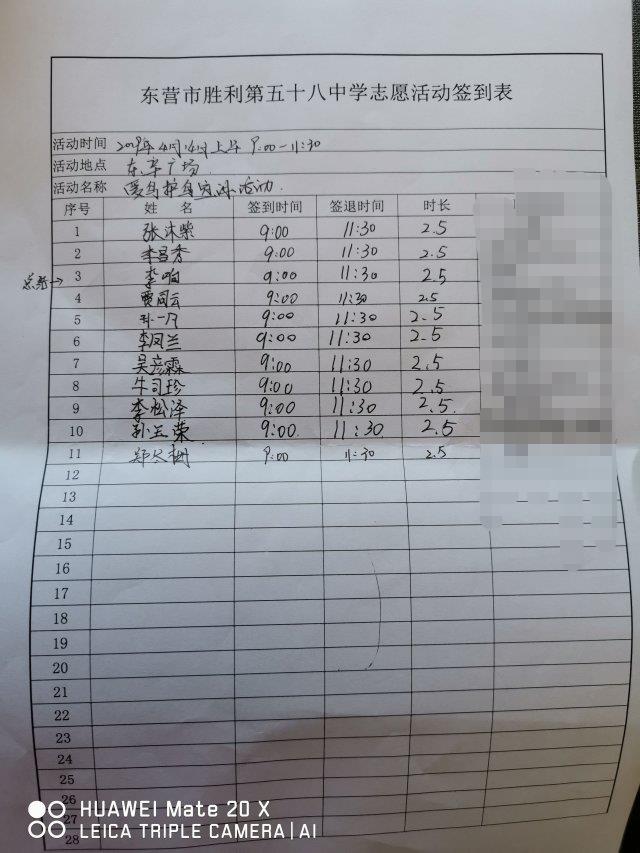 东营市胜利第五十八中学志愿活动签到表
活动时间 2019年4月14日上午 9:00-11:30
活动地点 东营广场
活动名称 爱鸟护鸟宣讲活动
序号 姓 名 签到时间 签退时间 时长
1 张沐紫 9:00 11:30 2.5
2 李昌秀 9:00 11:30 2.5
3 李响 9:00 11:30 2.5
4 贾同云 9:00 11:30 2.5
5 孙一 9:00 11:30 2.5
6 李凤兰 9:00 11:30 2.5
7 吴彦霖 9:00 11:30 2.5
8 牛司珍 9:00 11:30 2.5
9 李松泽 9:00 11:30 2.5
10 孙玉荣 9:00 11:30 2.5
11 9:00 11:30 2.5
12
13
14
15
16
17
18
19
20
21
22
23
24
25
26
27
28
HUAWEI Mate 20 X
LEICA TRIPLE CAMERA | AI